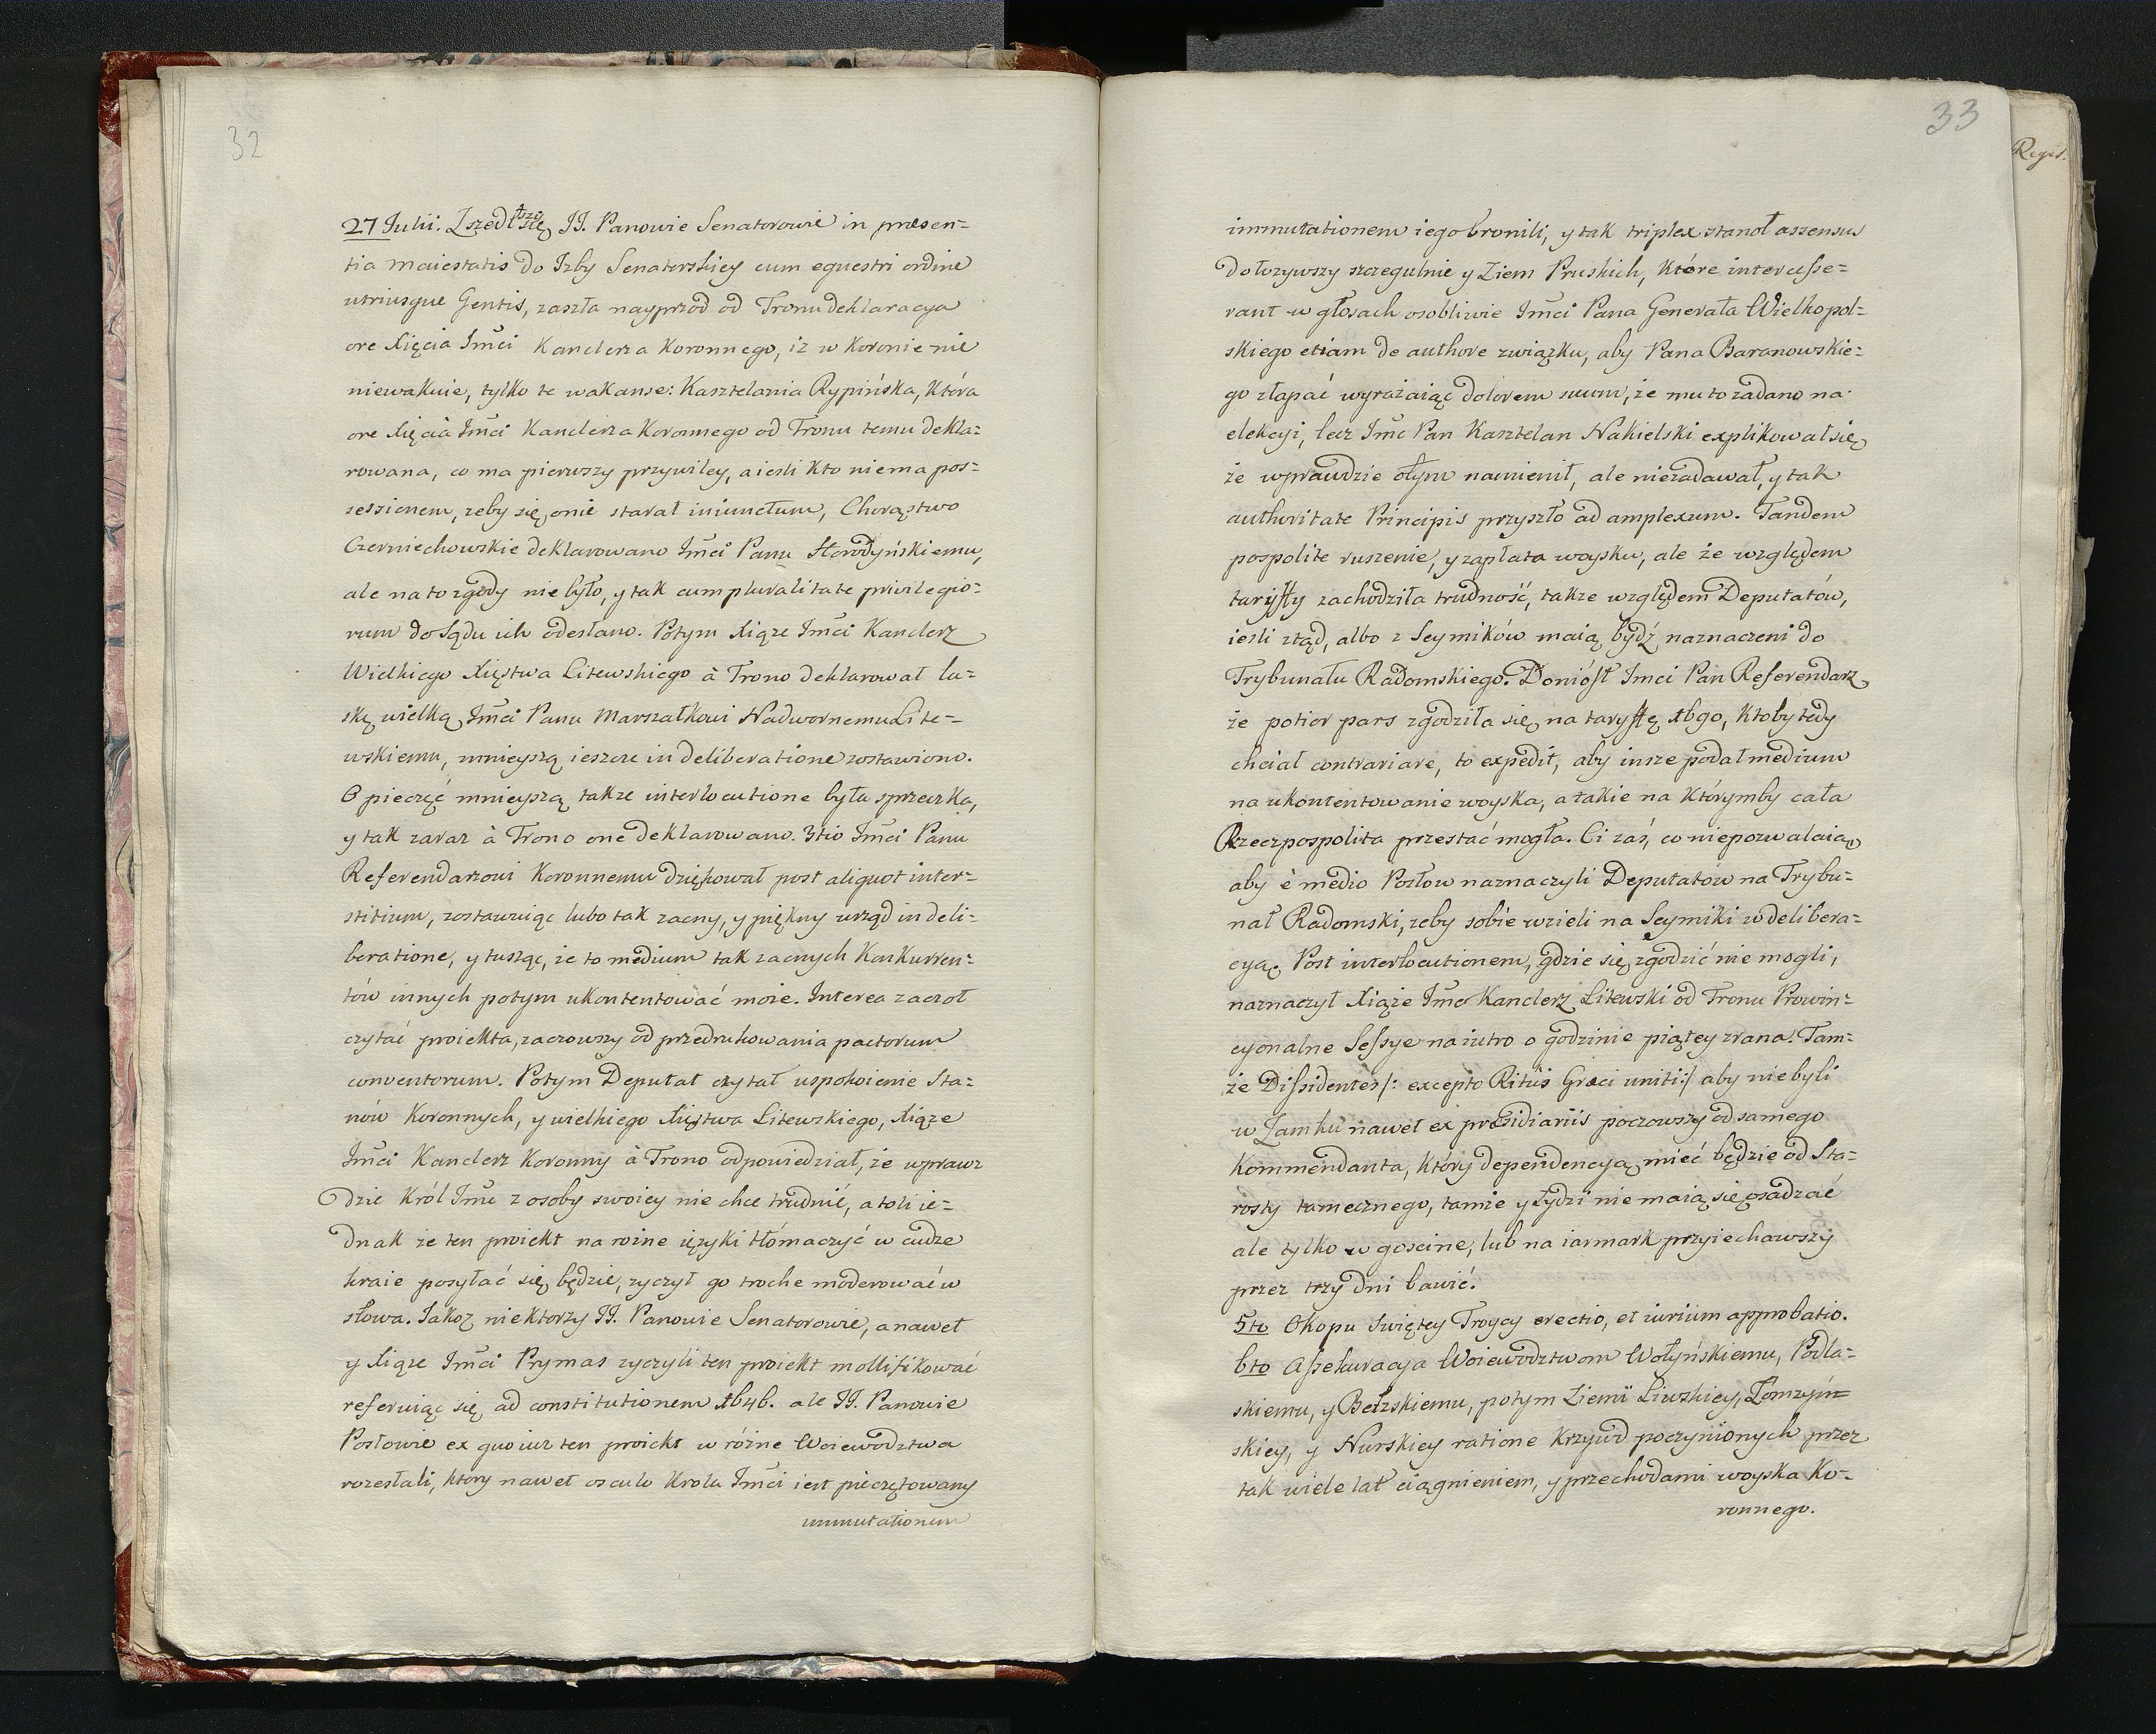 32
27 Iulii. Zszedłszy się JJ. Panowie Senatorowie in præsen=
tia maiestatis do Izby Senatorskiey cum equestri ordine
utriusque Gentis, zaszła nayprzod od Tronu deklaracya
ore Xięcia Jmći Kanclerza Koronnego, iz w Koronie nie
niewakuie, tylko te wakanse: Kasztelania Rypińska, która
ore Xięcia Jmći Kanclerza Koronnego od Tronu temu dekla=
rowana, co ma pierwszy przywiley, a iesli kto niema pos=
sessionem, zeby się, onie starał iniunctum, Chorąstwo
Czerniechowskie deklarowano Jmći Panu Horodyńskiemu,
ale na to zgody nie było, y tak cum pluralitate privilegio=
rum do Sądu ich odesłano. Potym Xiąze Jmći Kanclerz
Wielkiego Xięstwa Litewskiego à Trono deklarował la=
skę wielką Jmći Panu Marszałkowi Nadwornemu Lite=
wskiemu, mnieyszą ieszcze in deliberatione zostawiono.
O pieczęć mnieyszą takze interlocutione była sprzeczka,
y tak zaraz à Trono onę deklarowano. 3tio Jmći Panu
Referendarzowi Koronnemu dziękował post aliquot inter=
stitium, zostawuiąc lubo tak zacny, y piękny urząd in deli=
beratione, y tusząc, ze to medium tak zacnych Konkurren=
tów innych potym ukontentować moze. Interea zaczoł
czytać proiekta, zaczowszy od przedrukowania pactorum
conventorum. Potym Deputat czytał uspokoienie Sta=
nów Koronnych, y wielkiego Xięstwa Litewskiego, Xiąze
Jmći Kanclerz Koronny à Trono odpowiedział, że wpraw=
dzie Król Jmć z osoby swoiey nie chce trudnić, a toli ie=
dnak że ten proiekt na rożne ięzyki tłómaczyć w cudze
kraie posyłać się będzie, zyczył go troche moderować w
słowa. Jakoz niektorzy JJ. Panowie Senatorowie, a nawet
y Xiąze Jmći Prymas zyczyli ten proiekt mollifikować
referuiąc się ad constitutionem 1646. ale JJ. Panowie
Posłowie ex quo iuz ten proiekt w różne Woiewodztwa
rozesłali, ktory nawet osculo Krola Jmći iest pieczętowany
immutationem
33
immutationem iego bronili, y tak triplex stanoł assensus
Dołozywszy szczegulnie y Ziem Pruskich, które intercesse=
rant w głosach osobliwie Jmći Pana Generała Wielkopol=
skiego etiam de authore związku, aby Pana Baranowskie=
go złapać wyrażaiąc dolorem suum, że mu to zadano na
elekcyi, lecz Jmć Pan Kasztelan Nakielski explikował się
że wprawdzie o tym namienił, ale niezadawał, y tak
authoritate Principis przyszło ad amplexum. Tandem
pospolite ruszenie, y zapłata woysku, ale że względem
taryffy zachodziła trudność, takze względem Deputatów,
iesli ztąd, albo z Seymików maią bydź naznaczeni do
Trybunału Radomskiego. Doniósł Jmci Pan Referendarz
że potior pars zgodziła się na taryffę 1690, ktoby tedy
chciał contrariare, to expedit, aby insze podał medium
na ukontentowanie woyska, a takie na którymby cała
Rzeczpospolita przestać mogła. Ci zaś, co niepozwalaią
aby è medio Posłow naznaczyli Deputatów na Trybu=
nał Radomski, zeby sobie wzieli na Seymiki w delibera=
cyą. Post interlocutionem, gdzie się zgodzić nie mogli,
naznaczył Xiąże Jmć Kanclerz Litewski od Tronu Prowin=
cyonalne Sessye na iutro o godzinie piątey zrana. Tam=
że Dissidentes /: excepto Ritûs Græci uniti :/ aby niebyli
w Zamku nawet ex præsidiariis poczowszy od samego
Kommendanta, który dependencyą mieć będzie od Sta=
rosty tamecznego, tamże y Żydzi nie maią się osadzać
ale tylko w goscine, lub na iarmark przyiechawszy
przez trzy dni bawić.
5to Okopu Swiętey Troycy erectio, et iurium approbatio.
6to Assekuracya Woiewodztwom Wołyńskiemu, Podla=
skiemu, y Bełzskiemu, potym Ziemi Liwskiey, Łomzyń=
skiey, y Nurskiey ratione krzywd poczynionych przez
tak wiele lat ciągnieniem, y przechodami woyska Ko=
ronnego.